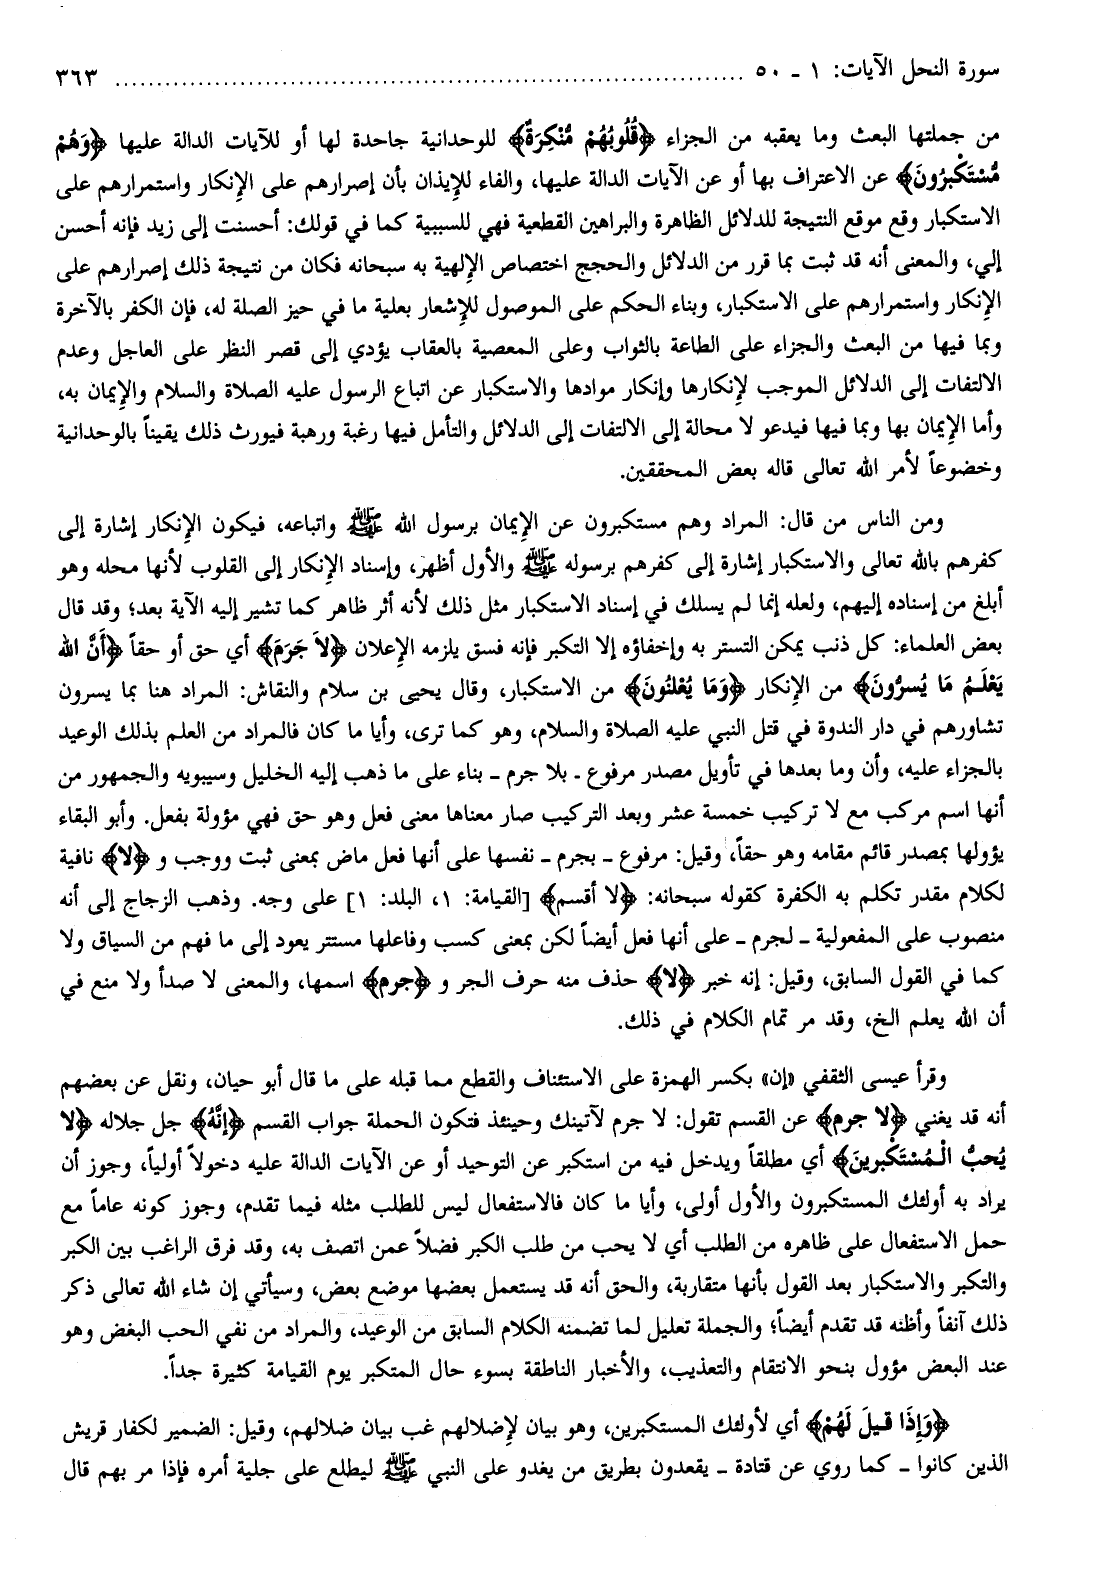 سورة النحل الآيات: ١ ـ ٥٠ ........................................................................ ٣٦٣
من جملتها البعث وما يعقبه من الجزاء ﴿قُلُوبُهُمْ مُنْكِرَةٌ﴾ للوحدانية جاحدة لها أو للآيات الدالة عليها ﴿وَهُمْ
مُسْتَكْبِرُونَ﴾ عن الاعتراف بها أو عن الآيات الدالة عليها، والفاء للإيذان بأن إصرارهم على الإنكار واستمرارهم على
الاستكبار وقع موقع النتيجة للدلائل الظاهرة والبراهين القطعية فهي للسببية كما في قولك: أحسنت إلى زيد فإنه أحسن
إلي، والمعنى أنه قد ثبت بما قرر من الدلائل والحجج اختصاص الإلهية به سبحانه فكان من نتيجة ذلك إصرارهم على
الإنكار واستمرارهم على الاستكبار، وبناء الحكم على الموصول للإشعار بعلية ما في حيز الصلة له، فإن الكفر بالآخرة
وبما فيها من البعث والجزاء على الطاعة بالثواب وعلى المعصية بالعقاب يؤدي إلى قصر النظر على العاجل وعدم
الالتفات إلى الدلائل الموجب لإنكارها وإنكار موادها والاستكبار عن اتباع الرسول عليه الصلاة والسلام والإيمان به،
وأما الإيمان بها وبما فيها فيدعو لا محالة إلى الالتفات إلى الدلائل والتأمل فيها رغبة ورهبة فيورث ذلك يقيناً بالوحدانية
وخضوعاً لأمر الله تعالى قاله بعض المحققين.
ومن الناس من قال: المراد وهم مستكبرون عن الإيمان برسول الله ﷺ واتباعه، فيكون الإنكار إشارة إلى
كفرهم بالله تعالى والاستكبار إشارة إلى كفرهم برسوله ﷺ والأول أظهر، وإسناد الإنكار إلى القلوب لأنها محله وهو
أبلغ من إسناده إليهم، ولعله إنما لم يسلك في إسناد الاستكبار مثل ذلك لأنه أثر ظاهر كما تشير إليه الآية بعد؛ وقد قال
بعض العلماء: كل ذنب يمكن التستر به وإخفاؤه إلا التكبر فإنه فسق يلزمه الإعلان ﴿لاَ جَرَمَ﴾ أي حق أو حقاً ﴿أَنَّ الله
يَعْلَمُ مَا يُسرُّونَ﴾ من الإنكار ﴿وَمَا يُعْلنُونَ﴾ من الاستكبار، وقال يحيى بن سلام والنقاش: المراد هنا بما يسرون
تشاورهم في دار الندوة في قتل النبي عليه الصلاة والسلام، وهو كما ترى، وأيا ما كان فالمراد من العلم بذلك الوعيد
بالجزاء عليه، وأن وما بعدها في تأويل مصدر مرفوع ـ بلا جرم ـ بناء على ما ذهب إليه الخليل وسيبويه والجمهور من
أنها اسم مركب مع لا تركيب خمسة عشر وبعد التركيب صار معناها معنى فعل وهو حق فهي مؤولة بفعل. وأبو البقاء
يؤولها بمصدر قائم مقامه وهو حقاً، وقيل: مرفوع ـ بجرم ـ نفسها على أنها فعل ماض بمعنى ثبت ووجب و ﴿لا﴾ نافية
لكلام مقدر تكلم به الكفرة كقوله سبحانه: ﴿لا أقسم﴾ [القيامة: ١، البلد: ١] على وجه. وذهب الزجاج إلى أنه
منصوب على المفعولية ـ لجرم ـ على أنها فعل أيضاً لكن بمعنى كسب وفاعلها مستتر يعود إلى ما فهم من السياق ولا
كما في القول السابق، وقيل: إنه خبر ﴿لا﴾ حذف منه حرف الجر و ﴿جرم﴾ اسمها، والمعنى لا صدأ ولا منع في
أن الله يعلم الخ، وقد مر تمام الكلام في ذلك.
وقرأ عيسى الثقفي «إن» بكسر الهمزة على الاستئناف والقطع مما قبله على ما قال أبو حيان، ونقل عن بعضهم
أنه قد يغني ﴿لا جرم﴾ عن القسم تقول: لا جرم لآتينك وحينئذ فتكون الحملة جواب القسم ﴿إنَّهُ﴾ جل جلاله ﴿لا
يُحبُّ الْمُسْتَكْبرينَ﴾ أي مطلقاً ويدخل فيه من استكبر عن التوحيد أو عن الآيات الدالة عليه دخولاً أولياً، وجوز أن
يراد به أولئك المستكبرون والأول أولى، وأيا ما كان فالاستفعال ليس للطلب مثله فيما تقدم، وجوز كونه عاماً مع
حمل الاستفعال على ظاهره من الطلب أي لا يحب من طلب الكبر فضلاً عمن اتصف به، وقد فرق الراغب بين الكبر
والتكبر والاستكبار بعد القول بأنها متقاربة، والحق أنه قد يستعمل بعضها موضع بعض، وسيأتي إن شاء الله تعالى ذكر
ذلك آنفاً وأظنه قد تقدم أيضاً؛ والجملة تعليل لما تضمنه الكلام السابق من الوعيد، والمراد من نفي الحب البغض وهو
عند البعض مؤول بنحو الانتقام والتعذيب، والأخبار الناطقة بسوء حال المتكبر يوم القيامة كثيرة جداً.
﴿وَإِذَا قيلَ لَهُمْ﴾ أي لأولئك المستكبرين، وهو بيان لإضلالهم غب بيان ضلالهم، وقيل: الضمير لكفار قريش
الذين كانوا ـ كما روي عن قتادة ـ يقعدون بطريق من يغدو على النبي ﷺ ليطلع على جلية أمره فإذا مر بهم قال